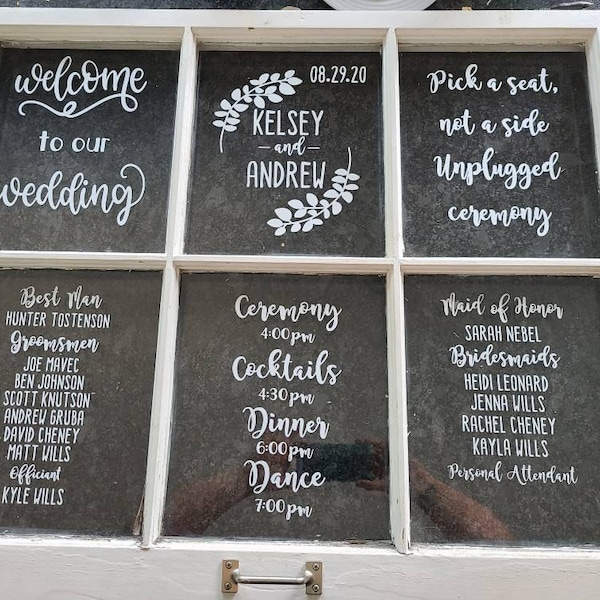 welcome
to our
wedding
08.29.20
KELSEY
and
ANDREW
Pick a seat,
not a side
Unplugged
ceremony
Best Man
HUNTER TOSTENSON
Groomsmen
JOE MAVEC
BEN JOHNSON
SCOTT KNUTSON
ANDREW GRUBA
DAVID CHENEY
MATT WILLS
Officiant
KYLE WILLS
Ceremony
4:00pm
Cocktails
4:30pm
Dinner
6:00pm
Dance
7:00pm
Maid of Honor
SARAH NEBEL
Bridesmaids
HEIDI LEONARD
JENNA WILLS
RACHEL CHENEY
KAYLA WILLS
Personal Attendant